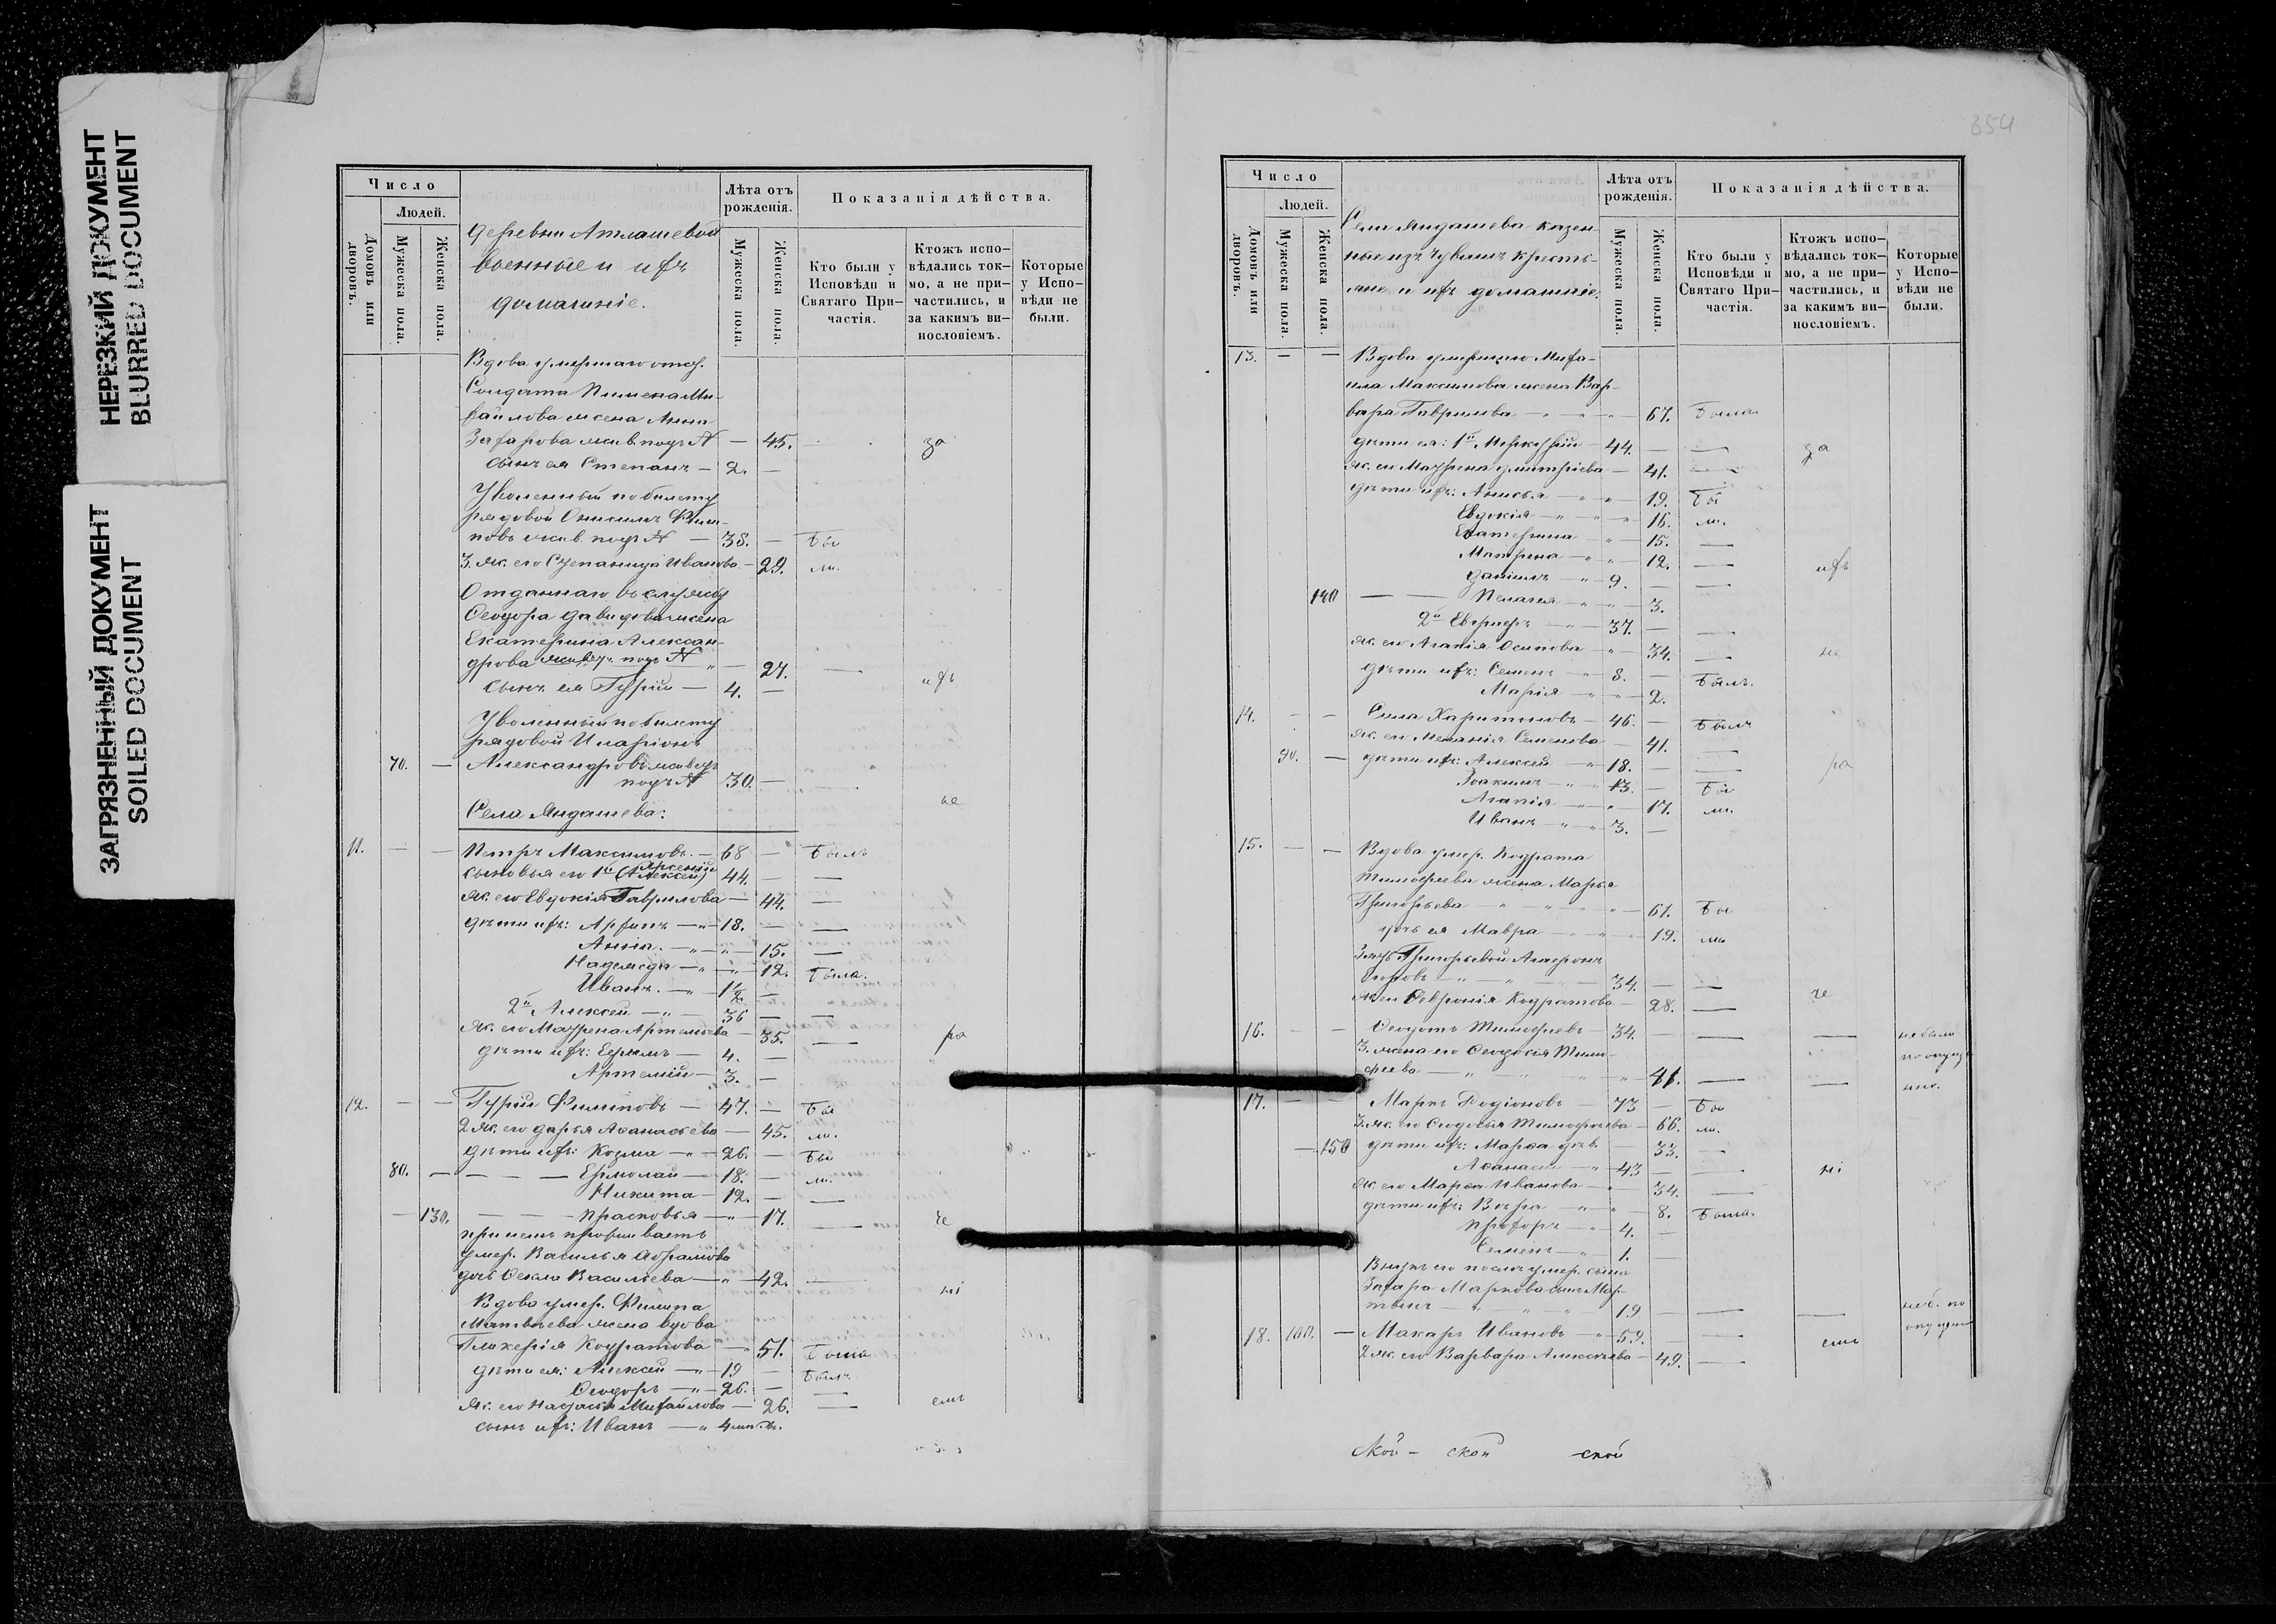 НЕРЕЗКИЙ ДОКУМЕНТ
BLURRED DOCUMENT
ЗАГРЯЗНЕННЫЙ ДОКУМЕНТ
SOILED DOCUMENT
Число
Людей.
Домовъ или дворовъ.
Мужеска пола.
Женска пола.
деревни Атлашевой
военные и ихъ
домашніе.
Лѣта отъ рожденія.
Мужеска пола.
Женска пола.
Показанія дѣйства.
Кто были у Исповѣди и Святаго При-
частія.
Ктожъ испо-
вѣдались ток-
мо, а не при-
частились, и
за какимъ ви-
нословіемъ.
Которые
у Испо-
вѣди не
были.
Вдова умершаго отст.
Солдата Пимена Ми-
хайлова жена Анна
Захарова жив. подъ N — 45. за
сынъ ея Степанъ — 2. —
Уволенный по билету
рядовой Онисимъ Фили-
повъ жив. подъ N — 38. — Бы
3. ж. его Степанида Иванова — 29. ли.
Отданнаго въ службу
Ѳеодора Давидова жена
Екатерина Алексан-
дрова живу. подъ N — 27. — ихъ
сынъ ея Гурій — 4. —
Уволенный по билету
рядовой Иларіонъ
70. — Александровъ живетъ
подъ N 30. — —
не
Села Яндашева:
11. — — Петръ Максимовъ. — 68 — Былъ
сыновья его 1й (Алексей) Арсеній 44. — —
ж. его Евдокія Гаврилова — 44. —
дѣти ихъ: Архипъ — 18. — —
Анна. — 15. —
Надежда — 12. Была.
Иванъ. — 1½ —
2й Алексей — 36 — —
ж. его Матрена Артемьева — 35. — ра
дѣти ихъ: Ефимъ — 4. —
Артемій — 3. —
12. — — Гурій Филиповъ — 47. — Бы
2 ж. его Дарья Аѳанасьева — 45. ли.
дѣти ихъ: Козма — 26. — Бы
80. — — Ермолай — 18. — ли.
Никита — 12. — —
— 130. — Прасковья — 17. — че
при немъ проживаетъ
умер. Василья Абрамова
дочь Ѳекла Васильева — 42. —
ні
Вдова умер. Филипа
Матвѣева жена вдова
Гликерія Кодратова — 51. Была
дѣти ея: Алексей — 19 — Былъ.
Ѳеодоръ — 26. — —
ж. его Настасья Михайлова — 26. — емъ
сынъ ихъ: Иванъ — 4 мѣ.
354
Число
Людей.
Домовъ или дворовъ.
Мужеска пола.
Женска пола.
Села Яндашева казен-
ные изъ чувашъ кресть-
яне и ихъ домашніе.
Лѣта отъ рожденія.
Мужеска пола.
Женска пола.
Показанія дѣйства.
Кто были у Исповѣди и Святаго При-
частія.
Ктожъ испо-
вѣдались ток-
мо, а не при-
частились, и
за какимъ ви-
нословіемъ.
Которые
у Испо-
вѣди не
были.
13. — — Вдова умершаго Миха-
ила Максимова жена Вар-
вара Гаврилова — 67. Была
дѣти ея: 1й Меркурій — 44. — — за
ж. его Матрена Дмитріева — 41. —
дѣти ихъ: Анисья — 19. Бы
Евдокія — 16. ли.
Екатерина — 15. —
Матрена — 12. — ихъ
Даніилъ — 9. — —
140 — — Пелагея — 3.
2й Евфимъ — 37. — —
ж. его Агапія Осипова — 34. — не
дѣти ихъ: Семенъ — 8. — Былъ.
Марія — 2.
14. — — Сила Харитоновъ — 46. — Былъ
ж. его Меланія Семенова — 41. —
90. — дѣти ихъ: Алексей — 18. — — ра
Іоакимъ — 13. — Бы
Агапія — 17. ли.
Иванъ — 3. —
15. — — Вдова умер. Кодрата
Тимоѳеева жена Марья
Григорьева — 61. Бы
дочь ея Мавра — 19. ли
Зять Григорьевой
34. — — че
ж. его Ѳевронія Кодратова — 28. —
16. — — Ѳеодотъ Тимоѳеевъ — 34. — — — не были
3. жена его Ѳеодосія Тимо- по опущ
ѳеева — 41. — — нію.
17. — — Маркъ Родіоновъ — 73 — Бы
3. ж. его Ѳеодосья Тимоѳеева — 66. ли.
— 150 дѣти ихъ: Марѳа дѣв. 33. —
Аѳанасій — 43 — — ні
ж. его Марѳа Иванова — 34. —
дѣти ихъ: Вѣра — 8. Была.
Прохоръ — 4. —
Семенъ — 1. —
Внукъ его послѣ умер. сына
Захара Маркова сынъ Мар-
тынъ — 19 — — — неб. по
18. 100. — Макаръ Ивановъ — 59. — — емъ
2 ж. его Варвара Алексѣева — 49. —
ской
ской